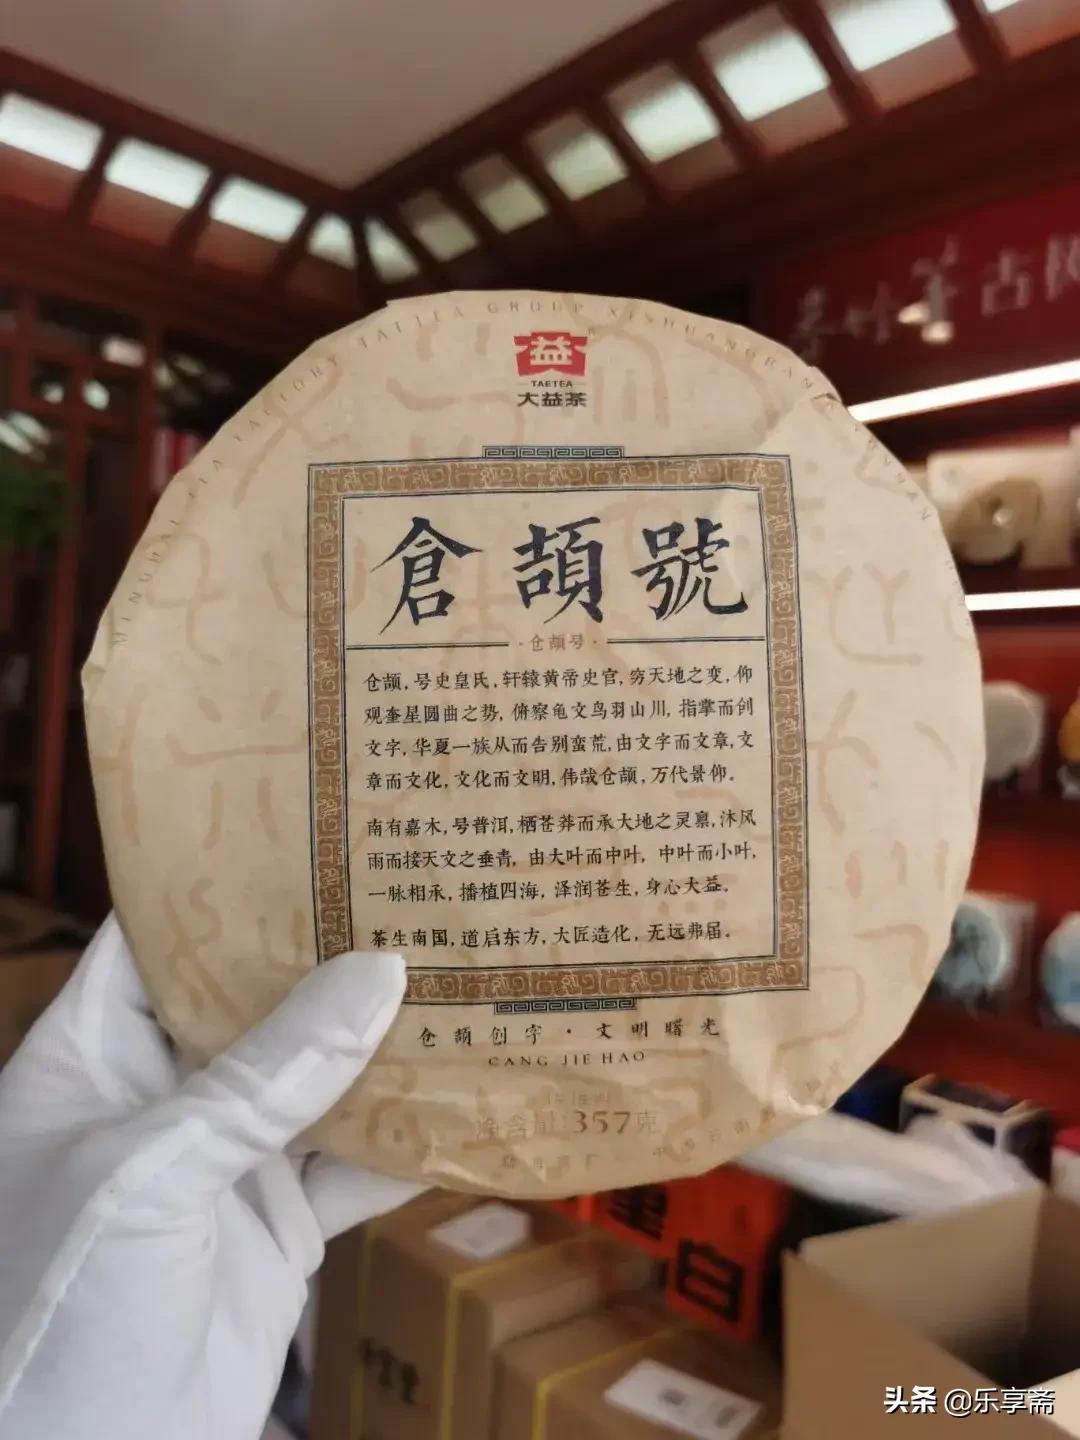 MENGHAI TEA FACTORY TAETEA GROUP XISHUANGBANNA YUNNAN
益
TAETEA
大益茶
倉頡號
·仓颉号·
仓颉，号史皇氏，轩辕黄帝史官，穷天地之变，仰
观奎星圆曲之势，俯察龟文鸟羽山川，指掌而创
文字，华夏一族从而告别蛮荒，由文字而文章，文
章而文化，文化而文明，伟哉仓颉，万代景仰。
南有嘉木，号普洱，栖苍莽而承大地之灵禀，沐风
雨而接天文之垂青，由大叶而中叶，中叶而小叶，
一脉相承，播植四海，泽润苍生，身心大益。
茶生南国，道启东方，大匠造化，无远弗届。
仓颉创字·文明曙光
CANG JIE HAO
净含量:357克
古树
白
头条 @乐享斋